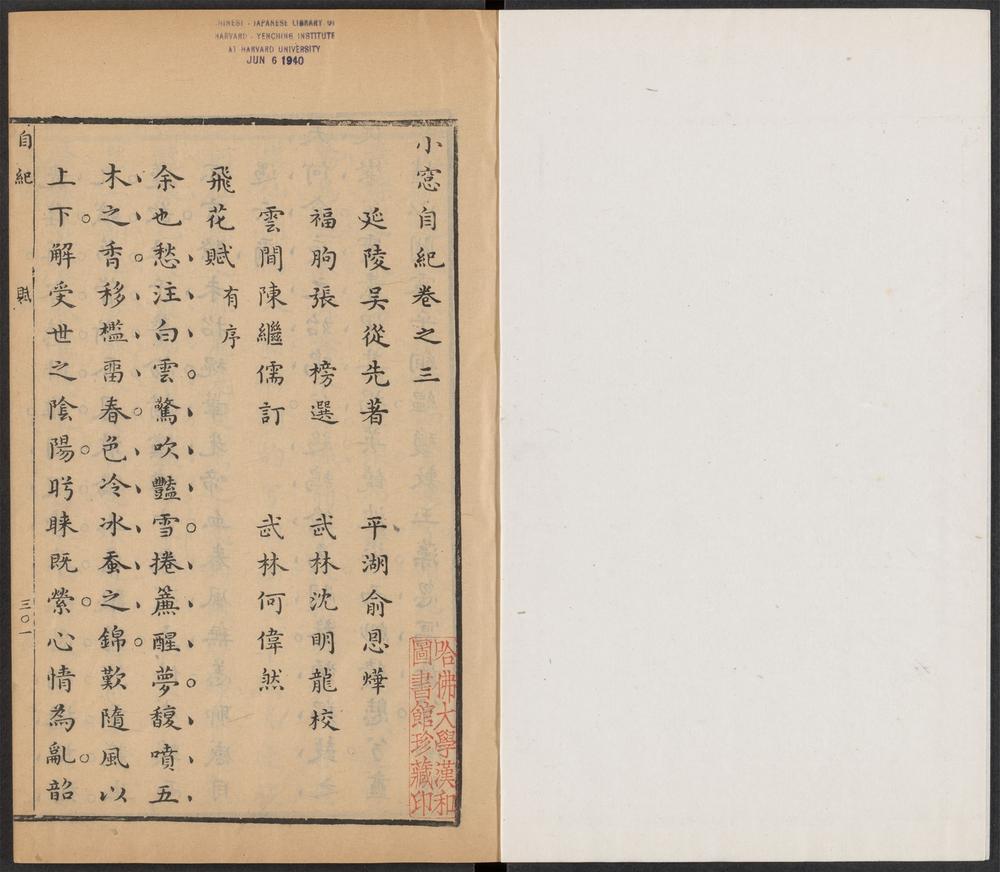 CHINESE - JAPANESE LIBRARY OF
HARVARD - YENCHING INSTITUTE
AT HARVARD UNIVERSITY
JUN 6 1940
小窓自紀卷之三
延陵吴從先著 平湖俞恩燁
福朐張 榜選 武林沈明龍校
雲間陳繼儒訂 武林何偉然
飛花賦有序
余也愁注白雲驚吹豔雪捲簾醒夢馥噴五
木之香移檻畱春色冷冰蚕之錦歎隨風以
上下解受世之陰陽盻睞既縈心情為亂韶
自紀 賦 三〇一
哈佛大學漢和
圖書館珍藏印